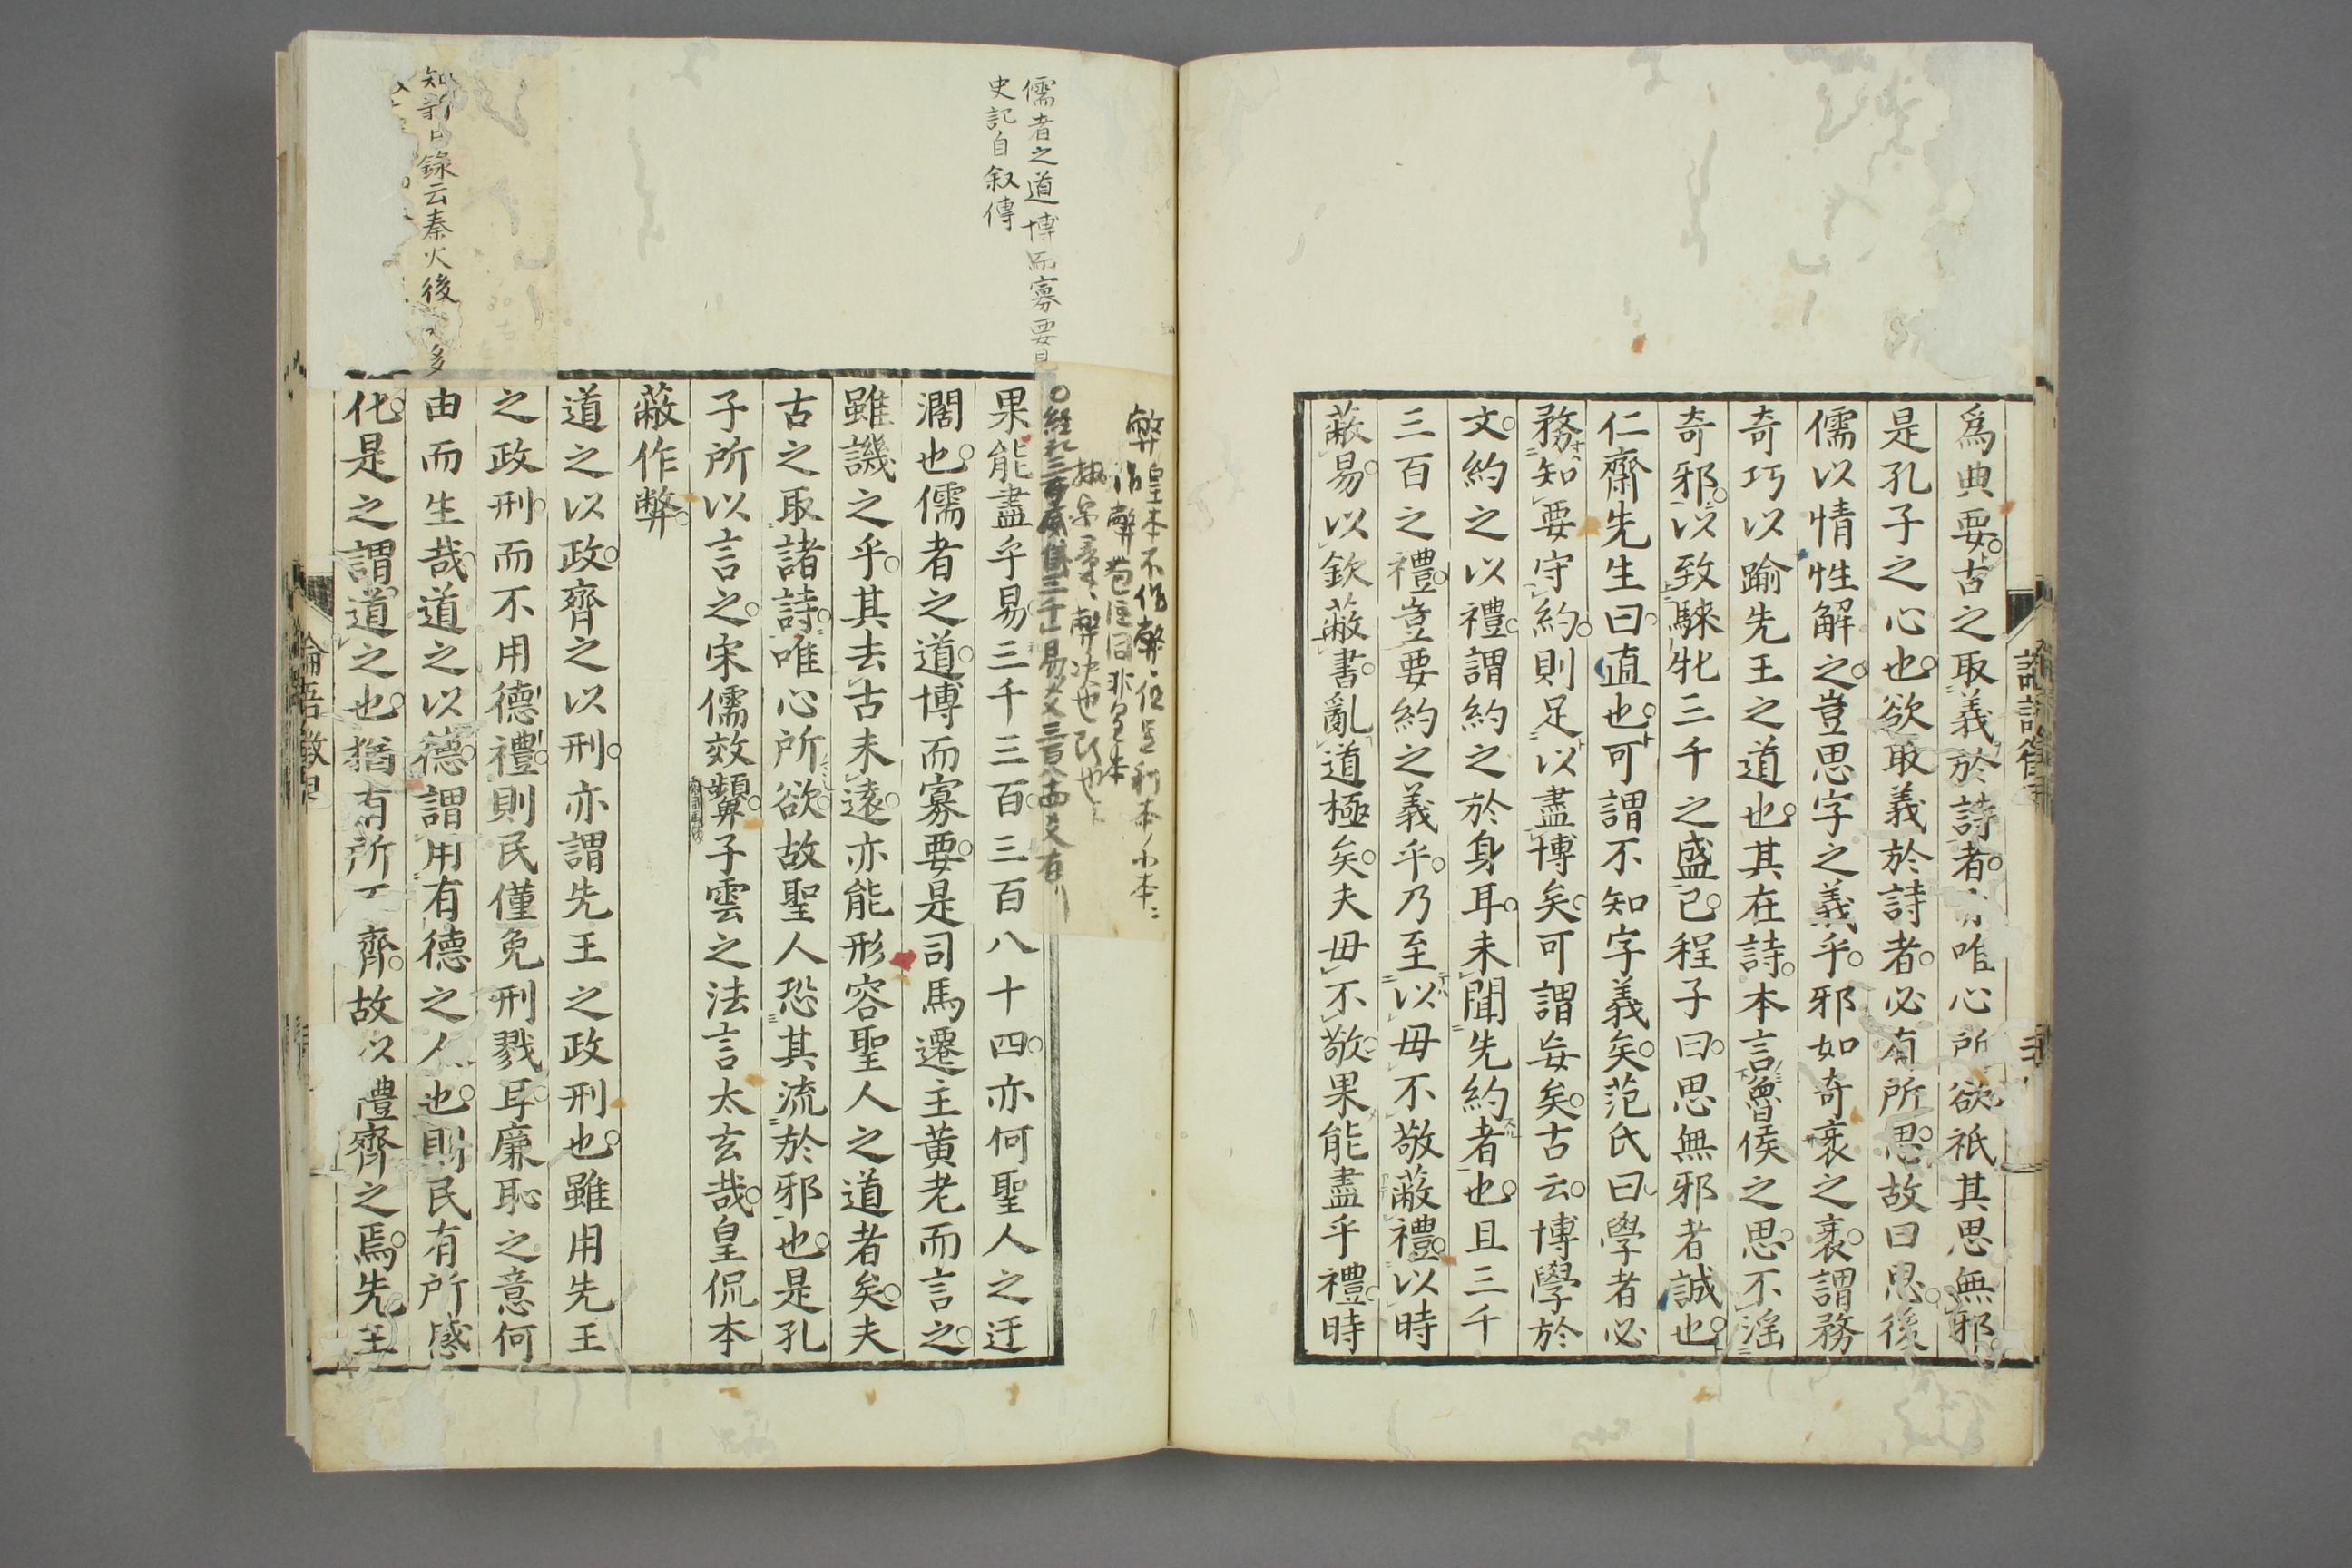 爲典要古之取義於詩者唯心所欲祇其思無邪
是孔子之心也欲取義於詩者必有所思故曰思後
儒以情性解之豈思字之義乎邪如奇衺之衺謂務
奇巧以踰先王之道也其在詩本言魯侯之思不滛
奇邪以致騋牝三千之盛已程子曰思無邪者誠也
仁齋先生曰直也可謂不知字義矣范氏曰學者必
務知要守約則足以盡博矣可謂妄矣古云博學於
文約之以禮謂約之於身耳未聞先約者也且三千
三百之禮豈要約之義乎乃至以毋不敬蔽禮以時
蔽易以欽蔽書亂道極矣夫毋不敬果能盡乎禮時
儒者之道博而寡要
史記自叙傳
果能盡乎易三千三百三百八十四亦何聖人之迂
濶也儒者之道博而寡要是司馬遷主黄老而言之
雖譏之乎其去古未遠亦能形容聖人之道者矣夫
古之取諸詩唯心所欲故聖人恐其流於邪也是孔
子所以言之宋儒效顰子雲之法言太玄哉皇侃本
蔽作弊
道之以政齊之以刑亦謂先王之政刑也雖用先王
之政刑而不用德禮則民僅免刑戮耳廉恥之意何
由而生哉道之以德謂用有德之人也則民有所感
化是之謂道之也猶有所不齊故以禮齊之焉先王
知新日錄云秦火後多
論語徵